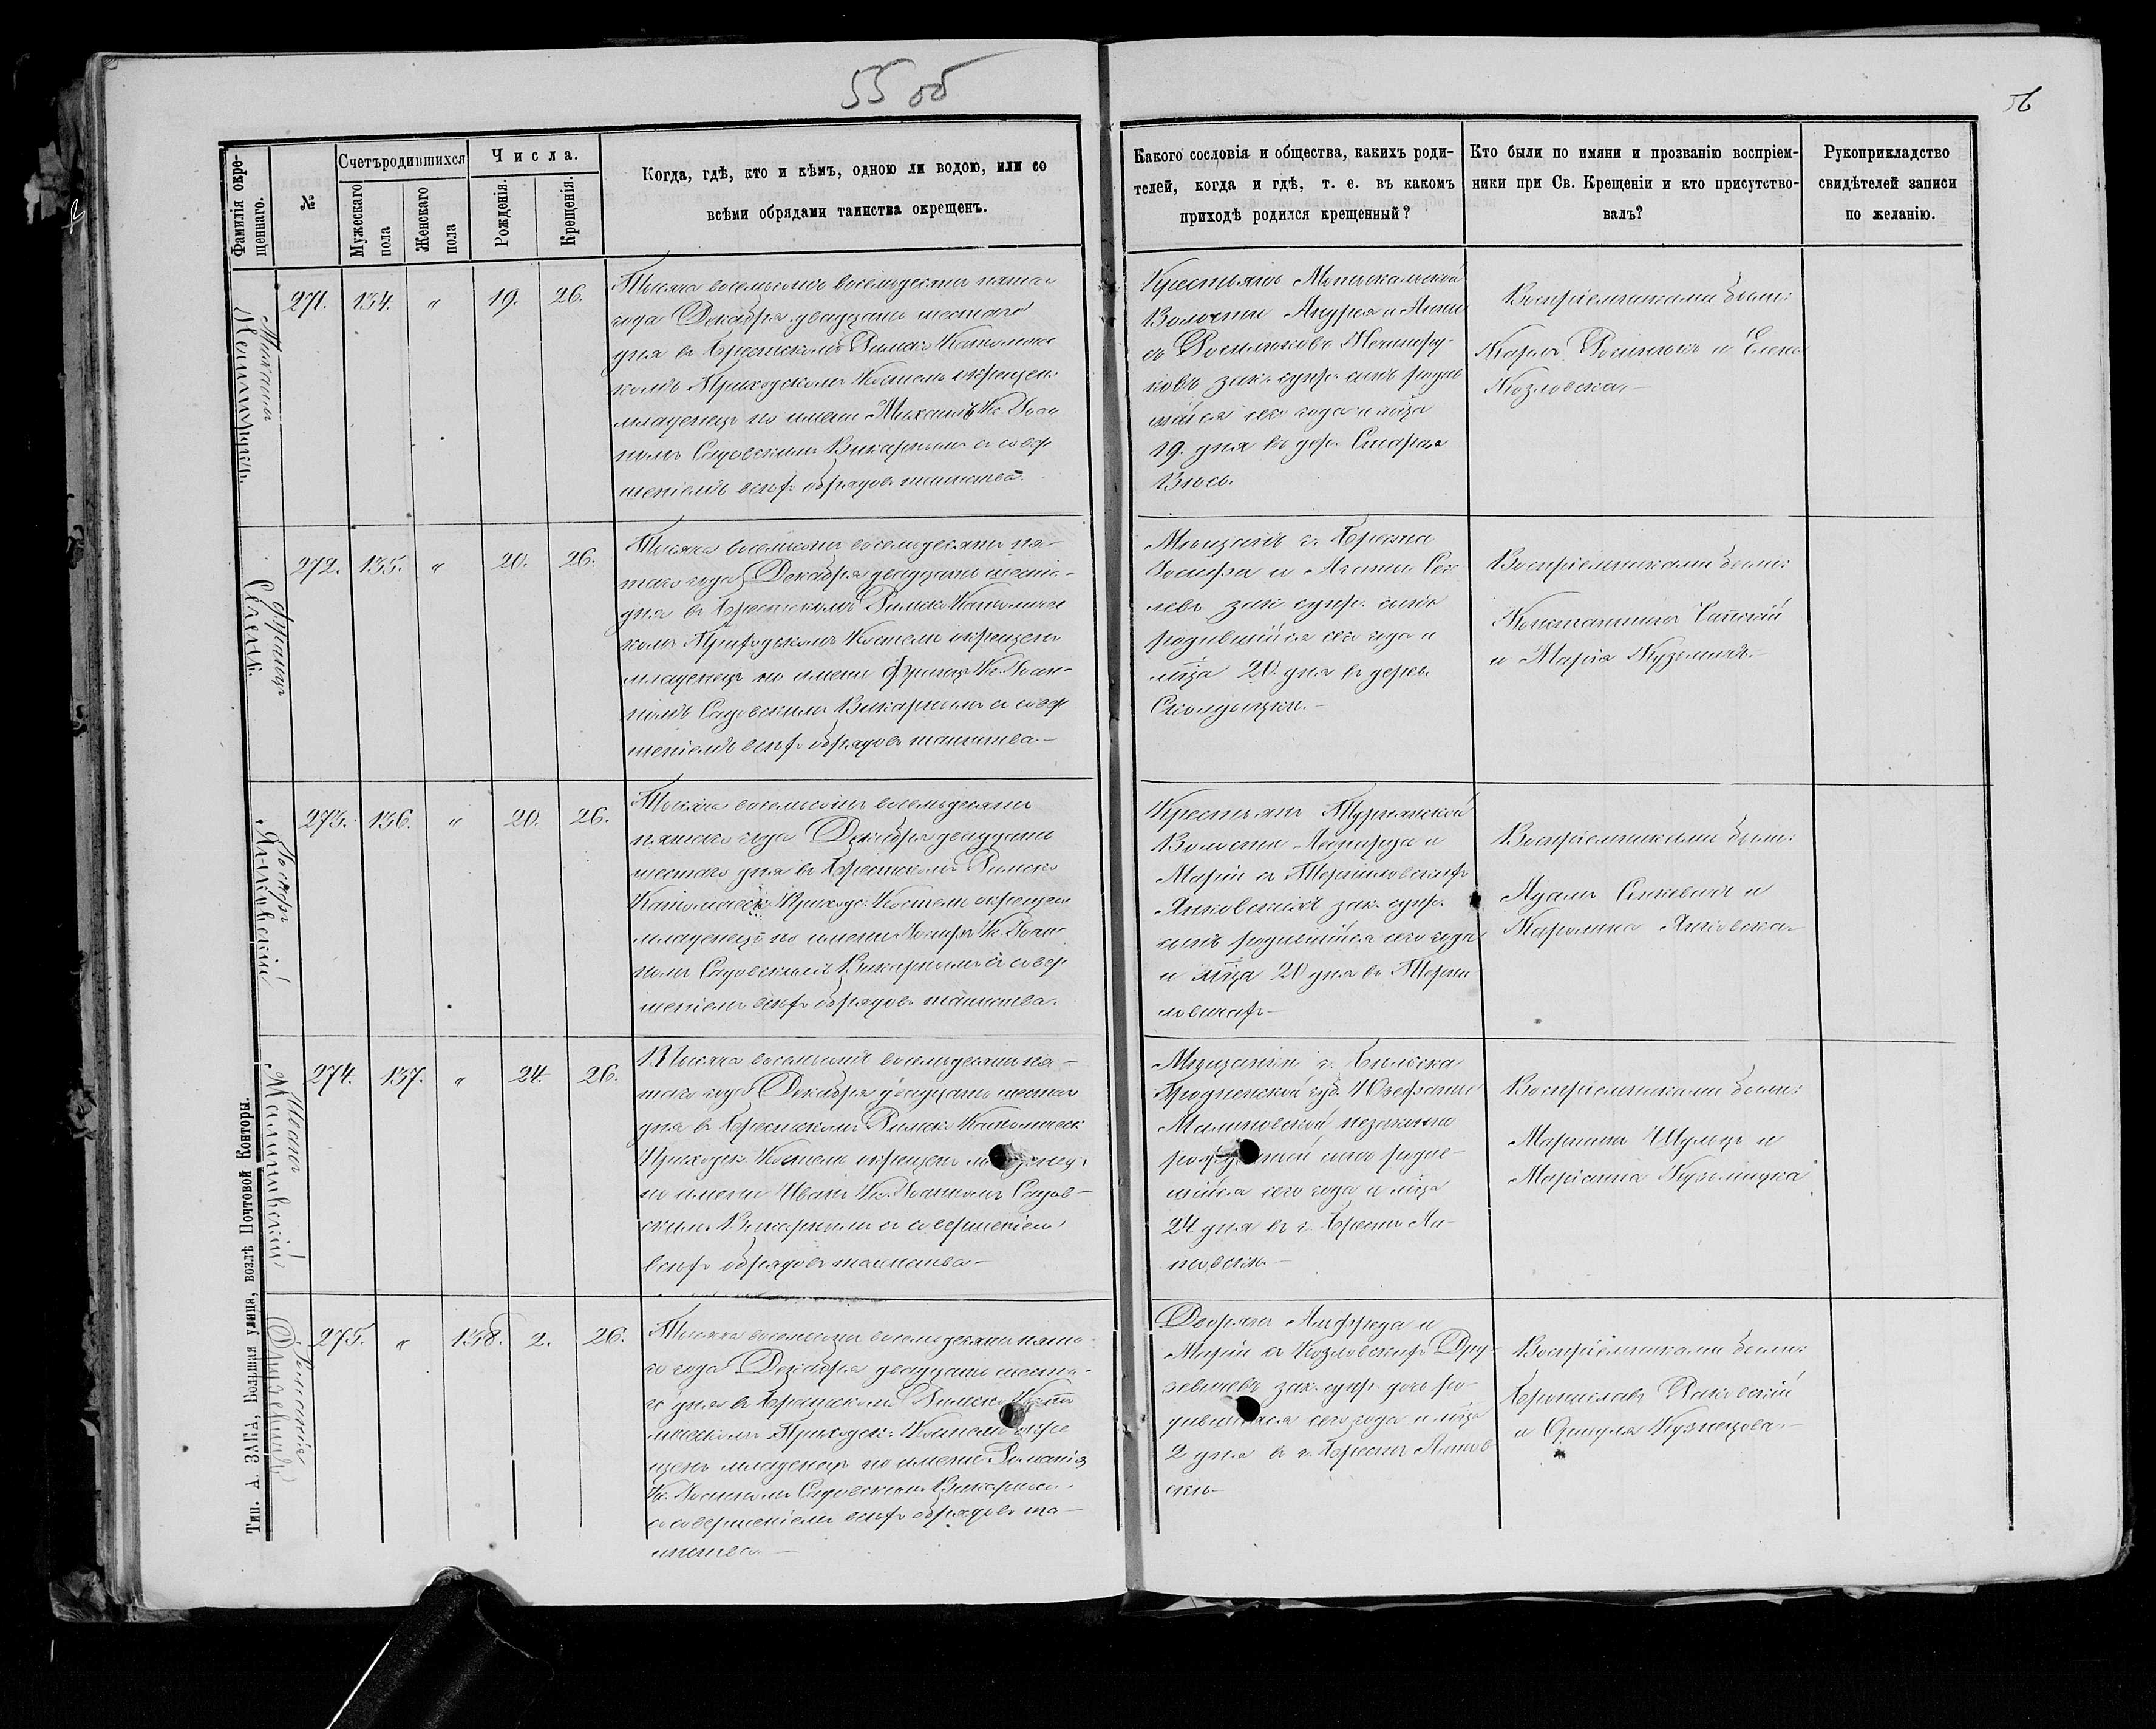 55 об
56
Фамилія окрещеннаго.
№
Счетъ родившихся
Мужескаго пола
Женскаго пола
Числа.
Рожденія.
Крещенія.
Когда, гдѣ, кто и кѣмъ, одною ли водою, или со
всѣми обрядами таинства окрещенъ.
Какого сословія и общества, какихъ роди-
телей, когда и гдѣ, т. е. въ какомъ
приходѣ родился крещенный?
Кто были по имяни и прозванію воспріем-
ники при Св. Крещеніи и кто присутство-
валъ?
Рукоприкладство
свидѣтелей записи
по желанію.
Михаилъ
271. 134. " 19. 26.
Тысяча восемьсотъ восемьдесятъ пятаго
года Декабря двадцать шестаго
дня въ Брестскомъ Римско Католичес
комъ Приходскомъ Костелѣ окрещенъ
младенецъ по имени Михаилъ Кс. Іоан
номъ Садовскимъ Викарнымъ съ совер
шеніемъ всѣхъ обрядовъ таинства.
Крестьянъ
Волости Андрея и Анны
зак. супр. сынъ родив
шійся сего года и м‑ца
19. дня въ дер. Старая
Воспріемниками были:
Карлъ и Елена
Козловская
Францъ
272. 135. " 20. 26.
Тысяча восемьсотъ восемьдесятъ пя-
таго года Декабря двадцать шеста-
дня въ Брестскомъ Римско Католичес
комъ Приходскомъ Костелѣ окрещенъ
младенецъ по имени Францъ Кс. Іоан-
номъ Садовскимъ Викарнымъ съ совер
шеніемъ всѣхъ обрядовъ таинства
Мѣщанъ г. Бреста
Іосифа и
зак. супр. сынъ
родившійся сего года и
м‑ца 20 дня въ дерев.
Воспріемниками были:
Константинъ
и Марія
Іосифъ
Янковскій
273. 136. " 20. 26.
Тысяча восемьсотъ восемьдесятъ
пятаго года Декабря двадцать
шестаго дня въ Брестскомъ Римско
Католическ. Приходс. Костелѣ окрещенъ
младенецъ по имени Іосифъ Кс. Іоан
номъ Садовскимъ Викарнымъ съ совер
шеніемъ всѣхъ обрядовъ таинства.
Крестьянъ Турнянской
Волости Леонарда и
Маріи съ Термиловскихъ
Янковскихъ зак. супр.
сынъ родившійся сего года
и м‑ца 20 дня въ Терми
ловскахъ
Воспріемниками были:
Адамъ Сенкевичъ и
Каролина Янковска
Иванъ
Малиновскій
274. 137. " 24. 26.
Тысяча восемьсотъ восемьдесятъ пя-
таго года Декабря двадцать шестаго
дня въ Брестскомъ Римско Католическ
Приходск. Костелѣ окрещенъ младенецъ
по имени Иванъ Кс. Іоанномъ Садов-
скимъ Викарнымъ съ совершеніемъ
всѣхъ обрядовъ таинства
Мѣщанки г. Бѣльска
Гродненской губ. Юзефаты
Малиновской незаконно
рожденный сынъ родив-
шійся сего года и м‑ца
24 дня въ г. Брестъ Ли-
товскъ
Воспріемниками были:
Мартинъ Шульцъ и
Маріанна
Романія
275. " 138. 2. 26.
Тысяча восемьсотъ восемьдесятъ пята-
го года Декабря двадцать шеста-
го дня въ Брестскомъ Римско Като
лическомъ Приходск. Костелѣ окре
щенъ младенецъ по имени Романія
Кс. Іоанномъ Садовскимъ Викарным.
со совершеніемъ всѣхъ обрядовъ та-
инства
Дворянъ Альфреда и
Маріи съ Козловскихъ
зак. супр. дочь ро-
дившаяся сего года и м‑ца
2 дня въ г. Брестъ Литов
скъ
Воспріемниками были:
Брониславъ Раковскій
и Кузнецова
Тип. А. ЗАКА, Большая улица, возлѣ Почтовой Конторы.